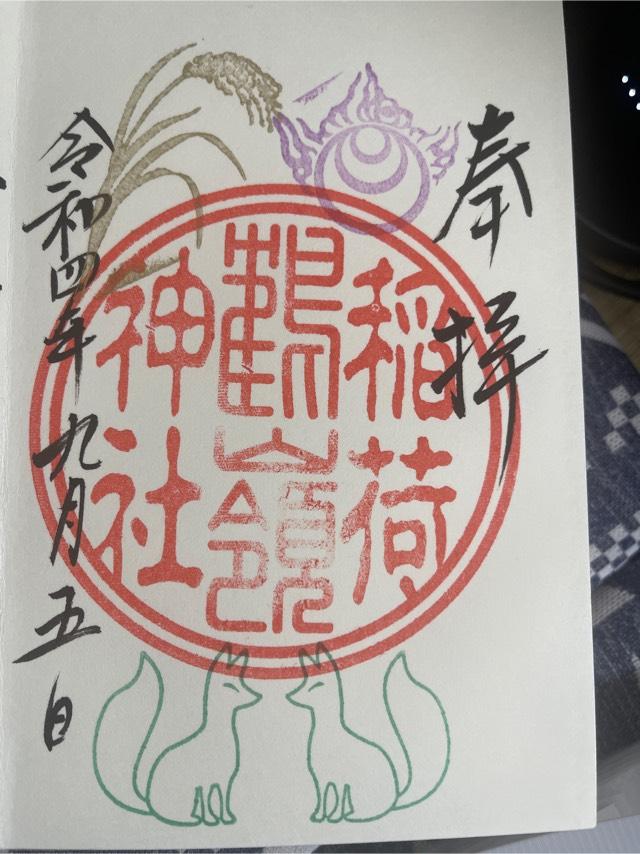 奉拝
稲荷
鶴嶺
神社
令和四年九月五日